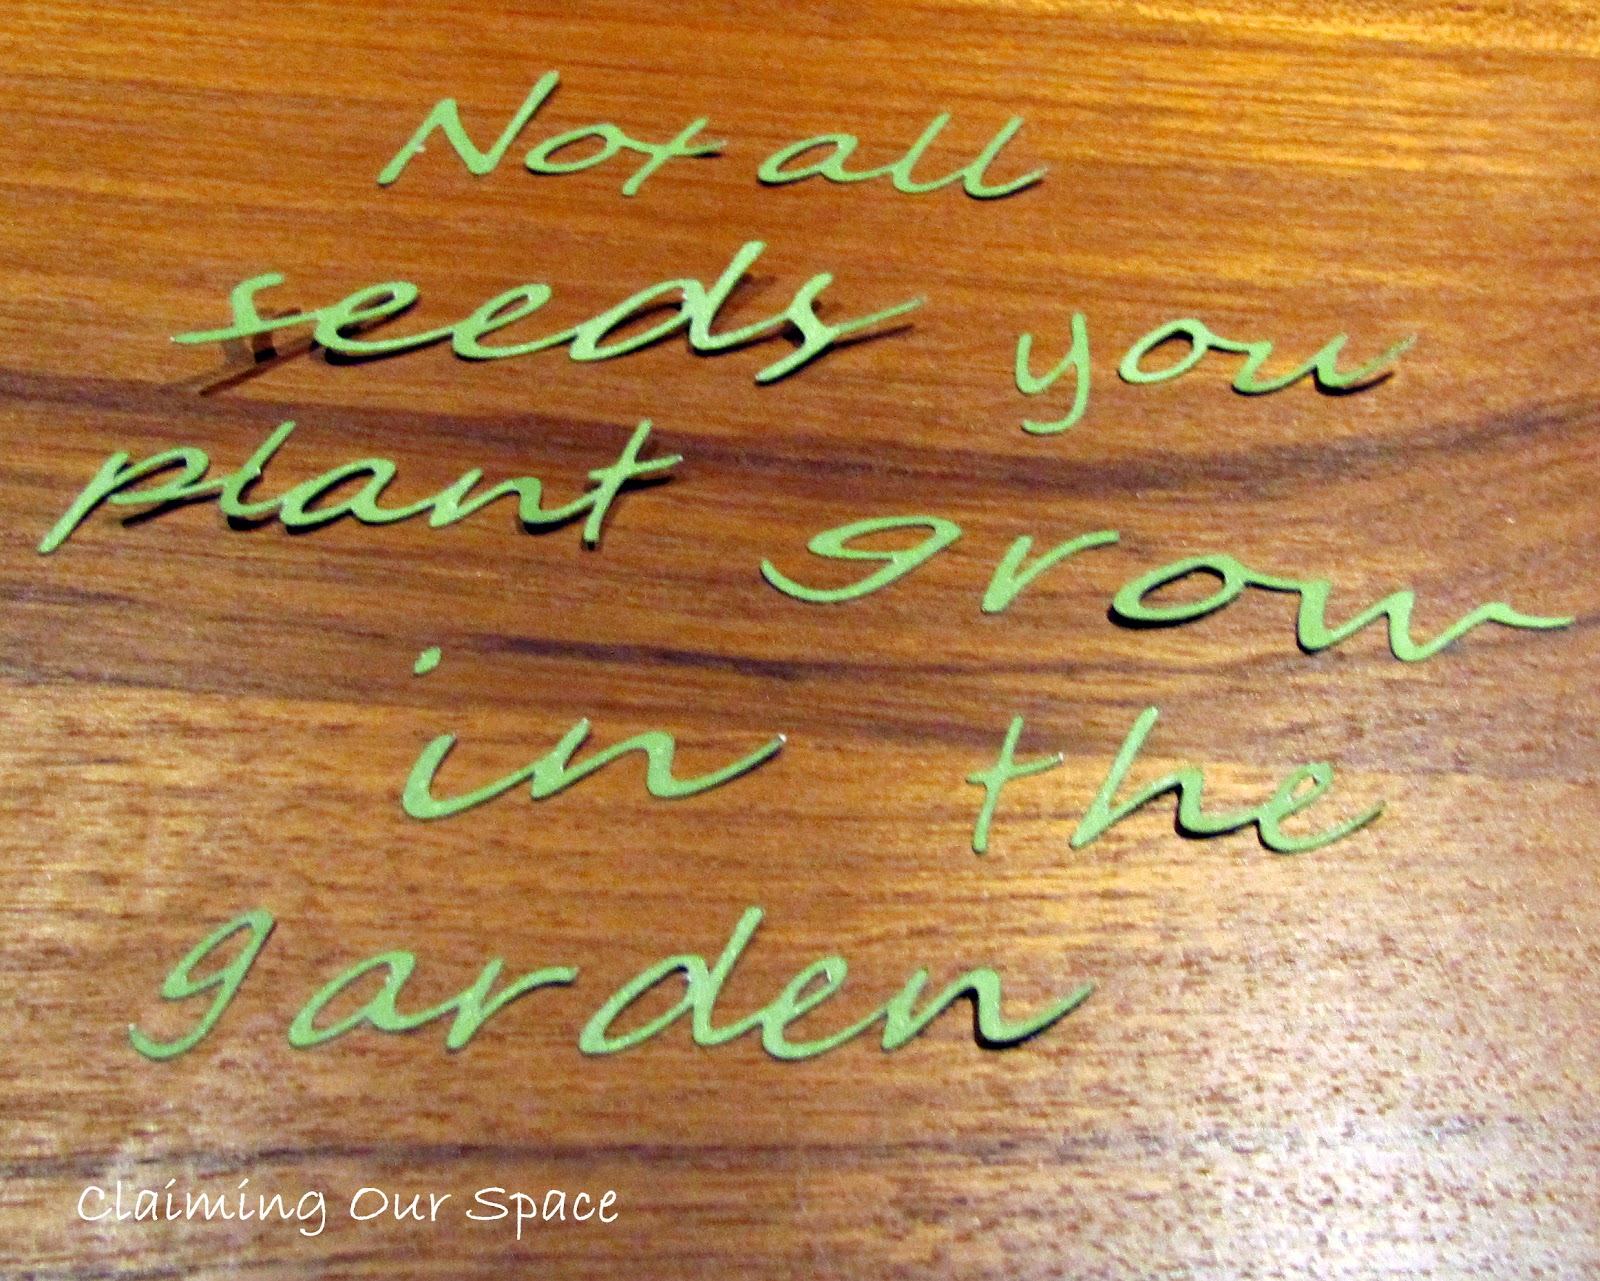 Not all
seeds you
plant grow
in the
garden
Claiming Our Space